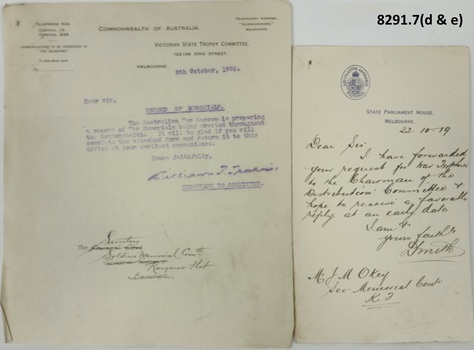 8291.7(d & e)
COMMONWEALTH OF AUSTRALIA.
TELEPHONE NOS.
CENTRAL
CENTRAL
COMMUNICATIONS TO BE ADDRESSED TO
THE SECRETARY
TELEGRAPHIC ADDRESS
MELBOURNE
VICTORIAN STATE TROPHY COMMITTEE.
KING STREET,
MELBOURNE.
October, 1920.
Dear Sir,
RECORD OF MEMORIALS.
The Australian War Museum is preparing
a record of War Memorials being erected throughout
the Commonwealth. It will be glad if you will
complete the attached form and return it to this
office at your earliest convenience.
Yours faithfully,
William T.
SECRETARY TO COMMITTEE.
The
Soldiers Memorial Comtt
Kangaroo Flat
STATE PARLIAMENT HOUSE,
MELBOURNE.
22-10-19
Dear Sir
I have forwarded
your request for War Trophies
to the Chairman of the
Distribution Committee &
hope to receive a favorable
reply at an early date
I am
yours faithf
DSmith
Mr J M Okey
Sec Memorial Comtt
K F